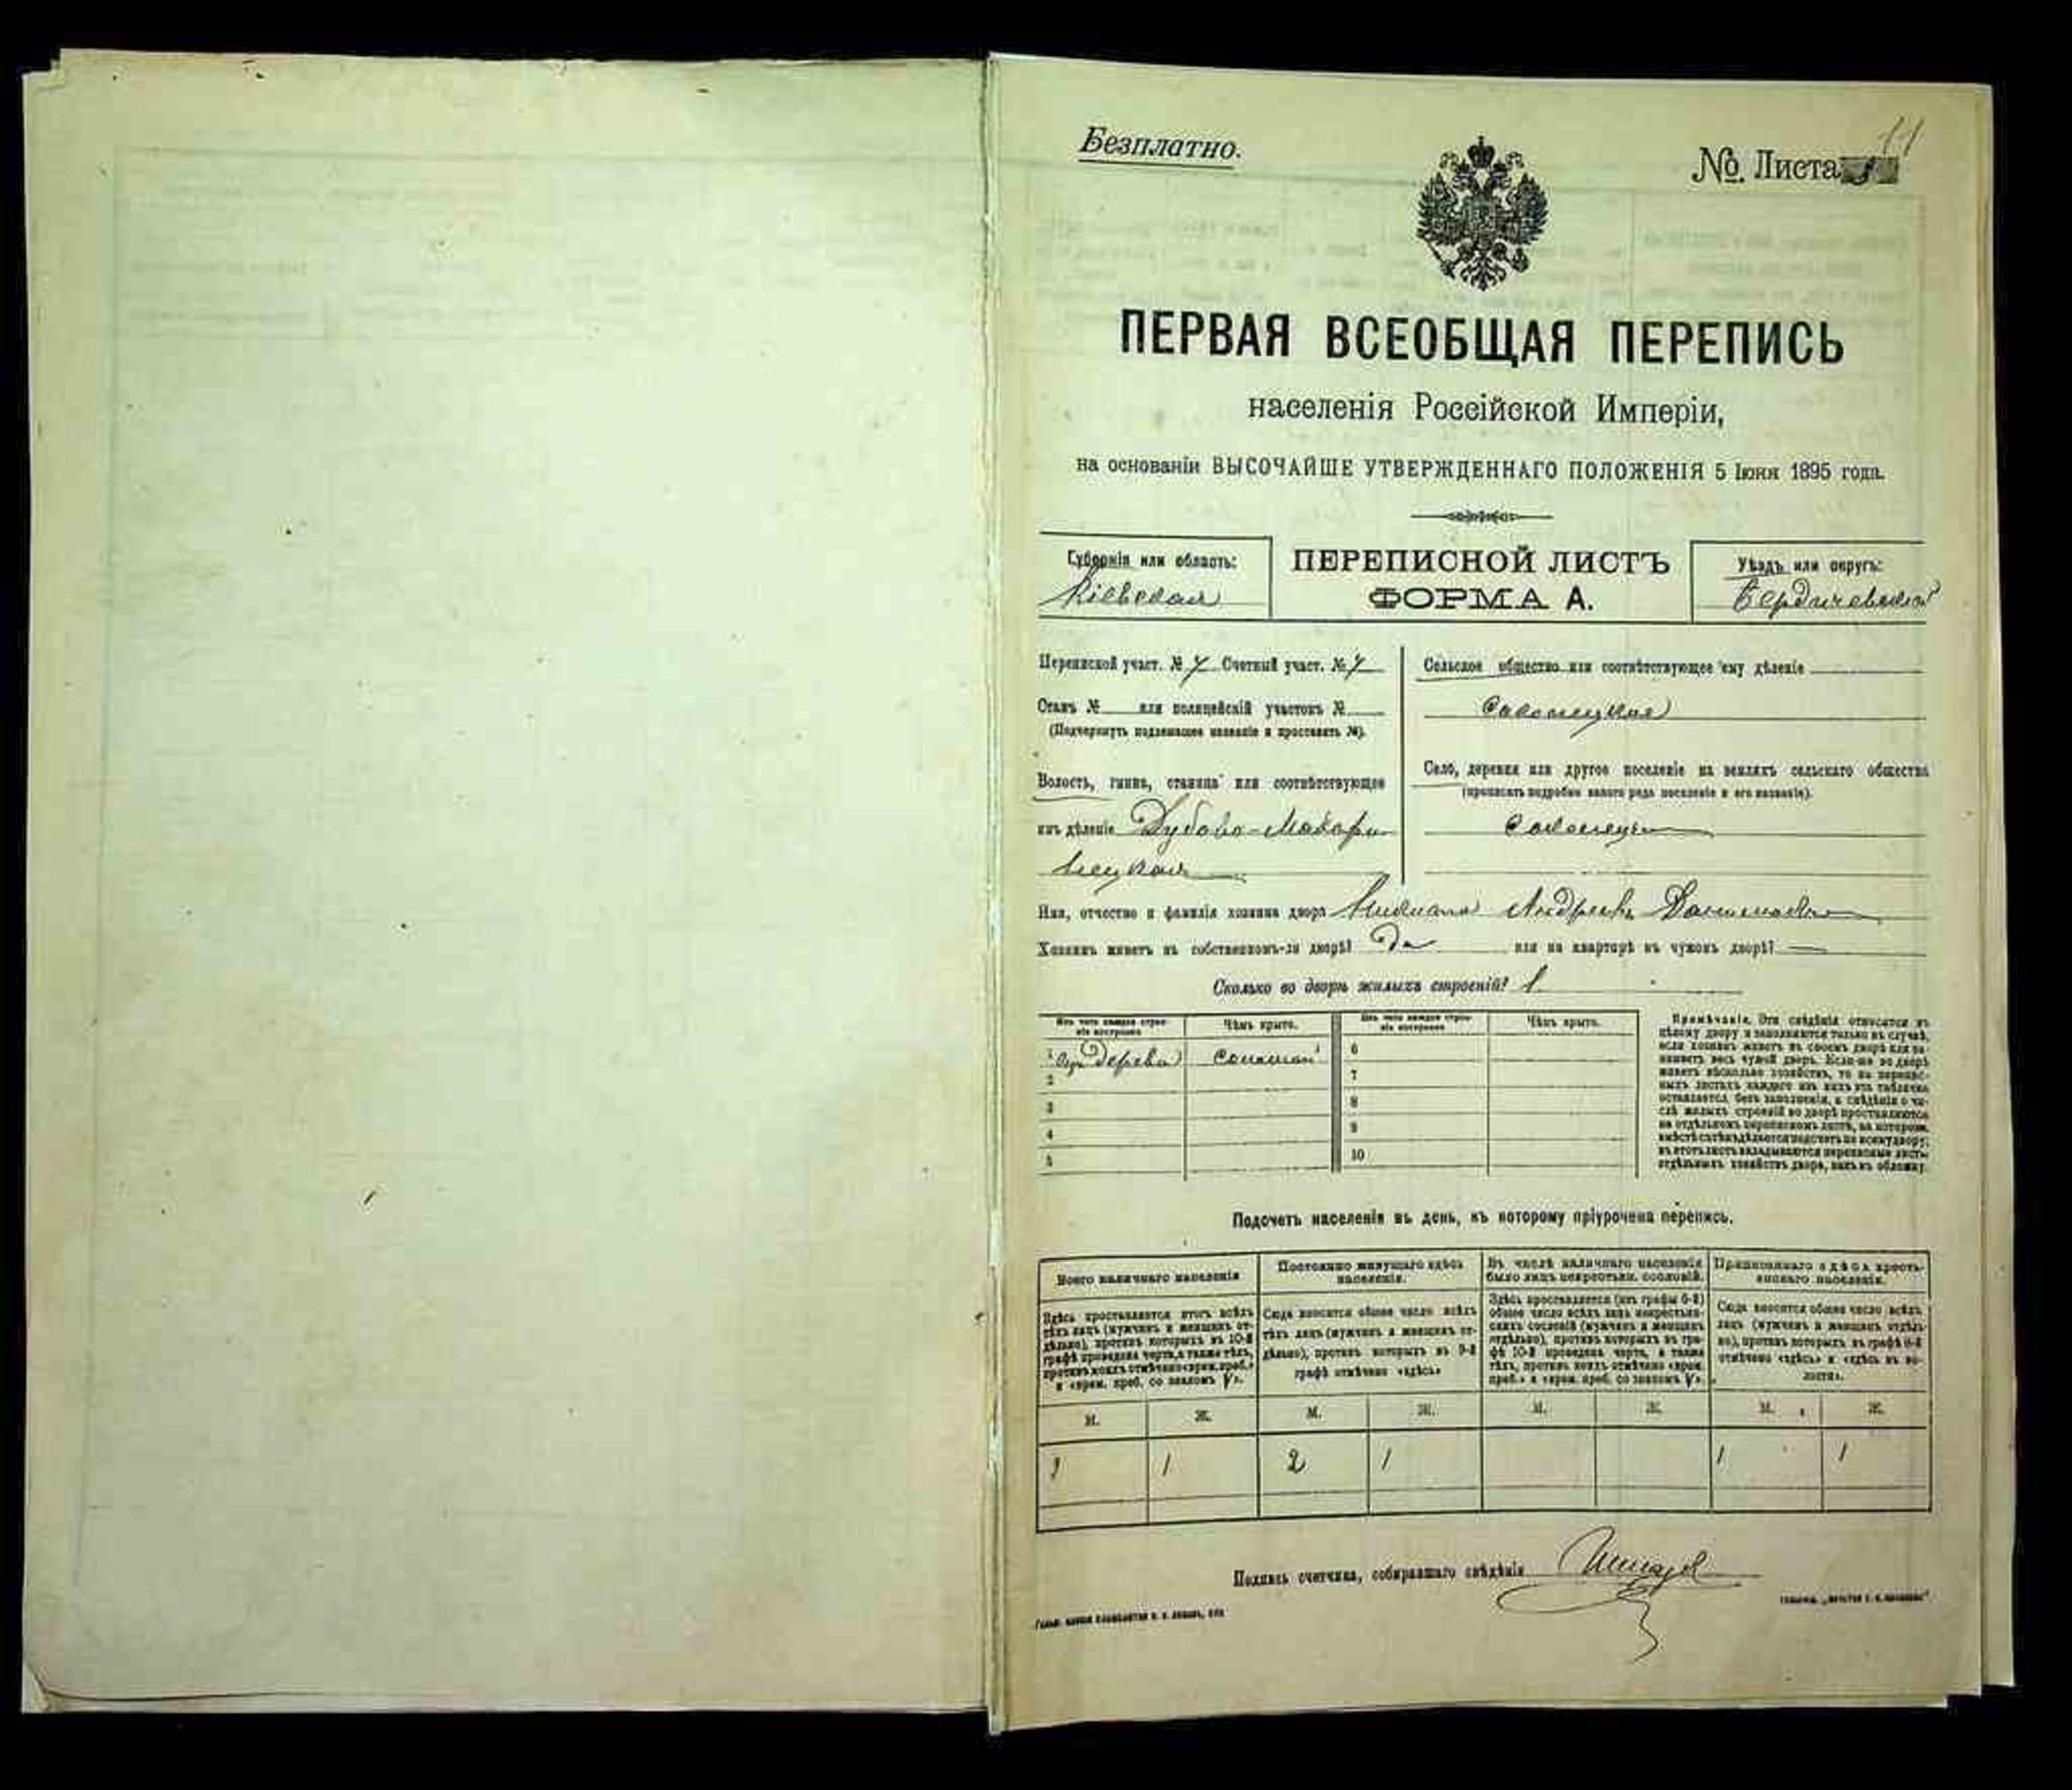 Безплатно.
№ Листа
11
ПЕРВАЯ ВСЕОБЩАЯ ПЕРЕПИСЬ
населенія Россійской Имперіи,
на основаніи ВЫСОЧАЙШЕ УТВЕРЖДЕННАГО ПОЛОЖЕНІЯ 5 Іюня 1895 года.
Губернія или область:
Кіевская
ПЕРЕПИСНОЙ ЛИСТЪ
ФОРМА А.
Уѣздъ или округъ:
Бердичевскій
Переписной участ. № 7 Счетный участ. № 7
Станъ № или полицейскій участокъ №
(Подчеркнуть подлежащее названіе и проставить №).
Волость, гмина, станица или соотвѣтствующее
имъ дѣленіе Дубово-Махари
нецкая
Сельское общество или соотвѣтствующее ему дѣленіе
Село, деревня или другое поселеніе на земляхъ сельскаго общества
(прописать подробно какого рода поселеніе и его названіе).
Имя, отчество и фамилія хозяина двора Андреевъ
Хозяинъ живетъ въ собственномъ-ли дворѣ? Да или на квартирѣ въ чужомъ дворѣ?
Сколько во дворѣ жилыхъ строеній? 1
Изъ чего каждое строеніе построено
Чѣмъ крыто.
Изъ чего каждое строеніе построено
Чѣмъ крыто.
1 дерева соломой
2
3
4
5
6
7
8
9
10
Примѣчаніе. Эти свѣдѣнія относятся къ
цѣлому двору и заполняются только въ случаѣ,
если хозяинъ живетъ въ своемъ дворѣ или занимаетъ
весь чужой дворъ. Если-же во дворѣ
живетъ нѣсколько хозяйствъ, то на переписныхъ
листахъ каждаго изъ нихъ эта табличка
оставляется безъ заполненія, а свѣдѣнія о числѣ
жилыхъ строеній во дворѣ проставляются
на отдѣльномъ переписномъ листѣ, на которомъ
вмѣстѣ съ тѣмъ дѣлается подсчетъ по всему двору;
въ этотъ листъ вкладываются переписные листы
отдѣльныхъ хозяйствъ двора, какъ въ обложку.
Подсчетъ населенія въ день, къ которому пріурочена перепись.
Всего наличнаго населенія
Здѣсь проставляется итогъ всѣхъ
тѣхъ лицъ (мужчинъ и женщинъ отдѣльно),
противъ которыхъ въ 10-й
графѣ проведена черта, а также тѣхъ,
противъ коихъ отмѣчено «врем. преб.»
и «врем. преб. со знакомъ V».
Постоянно живущаго здѣсь
населенія.
Сюда вносится общее число всѣхъ
тѣхъ лицъ (мужчинъ и женщинъ отдѣльно),
противъ которыхъ въ 9-й
графѣ отмѣчено «здѣсь»
Въ числѣ наличнаго населенія
было лицъ некрестьян. сословій.
Здѣсь проставляется (изъ графы 6-й)
общее число всѣхъ лицъ некрестьянскихъ
сословій (мужчинъ и женщинъ
отдѣльно), противъ которыхъ въ графѣ
10-й проведена черта, а также
тѣхъ, противъ коихъ отмѣчено «врем.
преб.» и «врем. преб. со знакомъ V».
Приписаннаго здѣсь крестьянскаго
населенія.
Сюда вносится общее число всѣхъ
лицъ (мужчинъ и женщинъ отдѣльно),
противъ которыхъ въ графѣ 8-й
отмѣчено «здѣсь» и «здѣсь въ волости».
М. Ж. М. Ж. М. Ж. М. Ж.
1 1 2 1 1 1
Подпись счетчика, собиравшаго свѣдѣнія